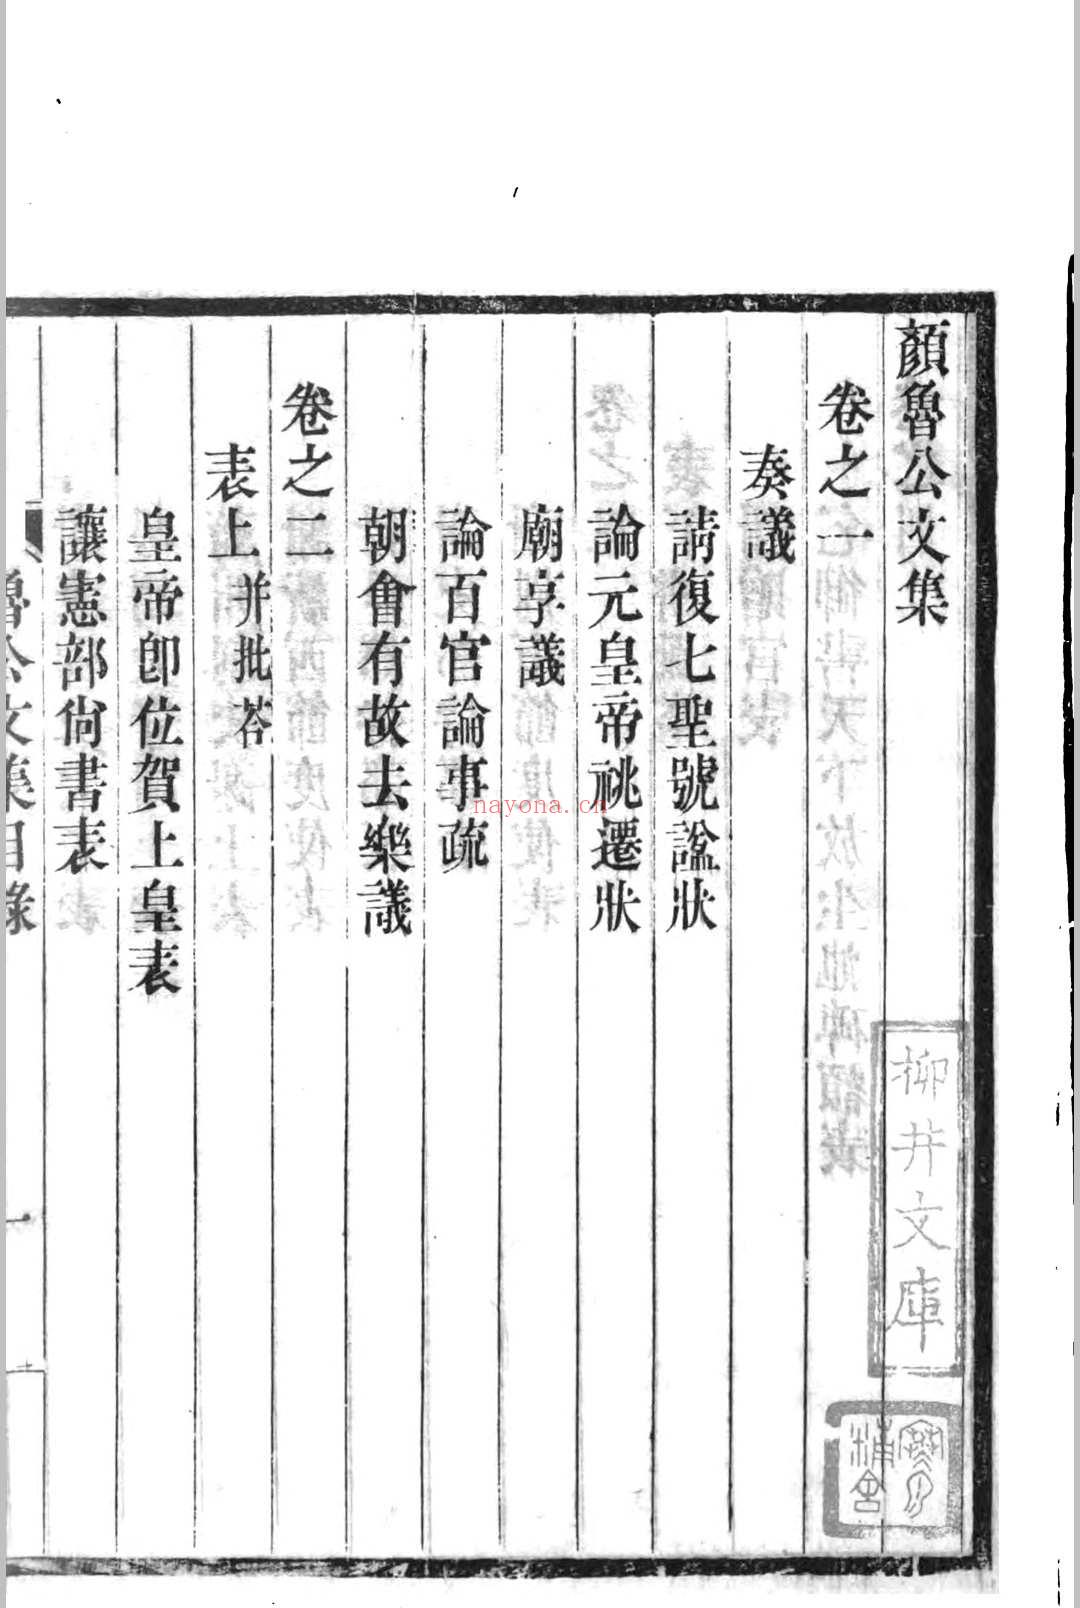 顏魯公文集
卷之一
奏議
請復七聖號諡狀
論元皇帝祧遷狀
廟享議
論百官論事疏
朝會有故去樂議
卷之二
表上 并批荅
皇帝卽位賀上皇表
讓憲部尙書表
魯公文集目錄
一
柳井文庫
nayona.cn